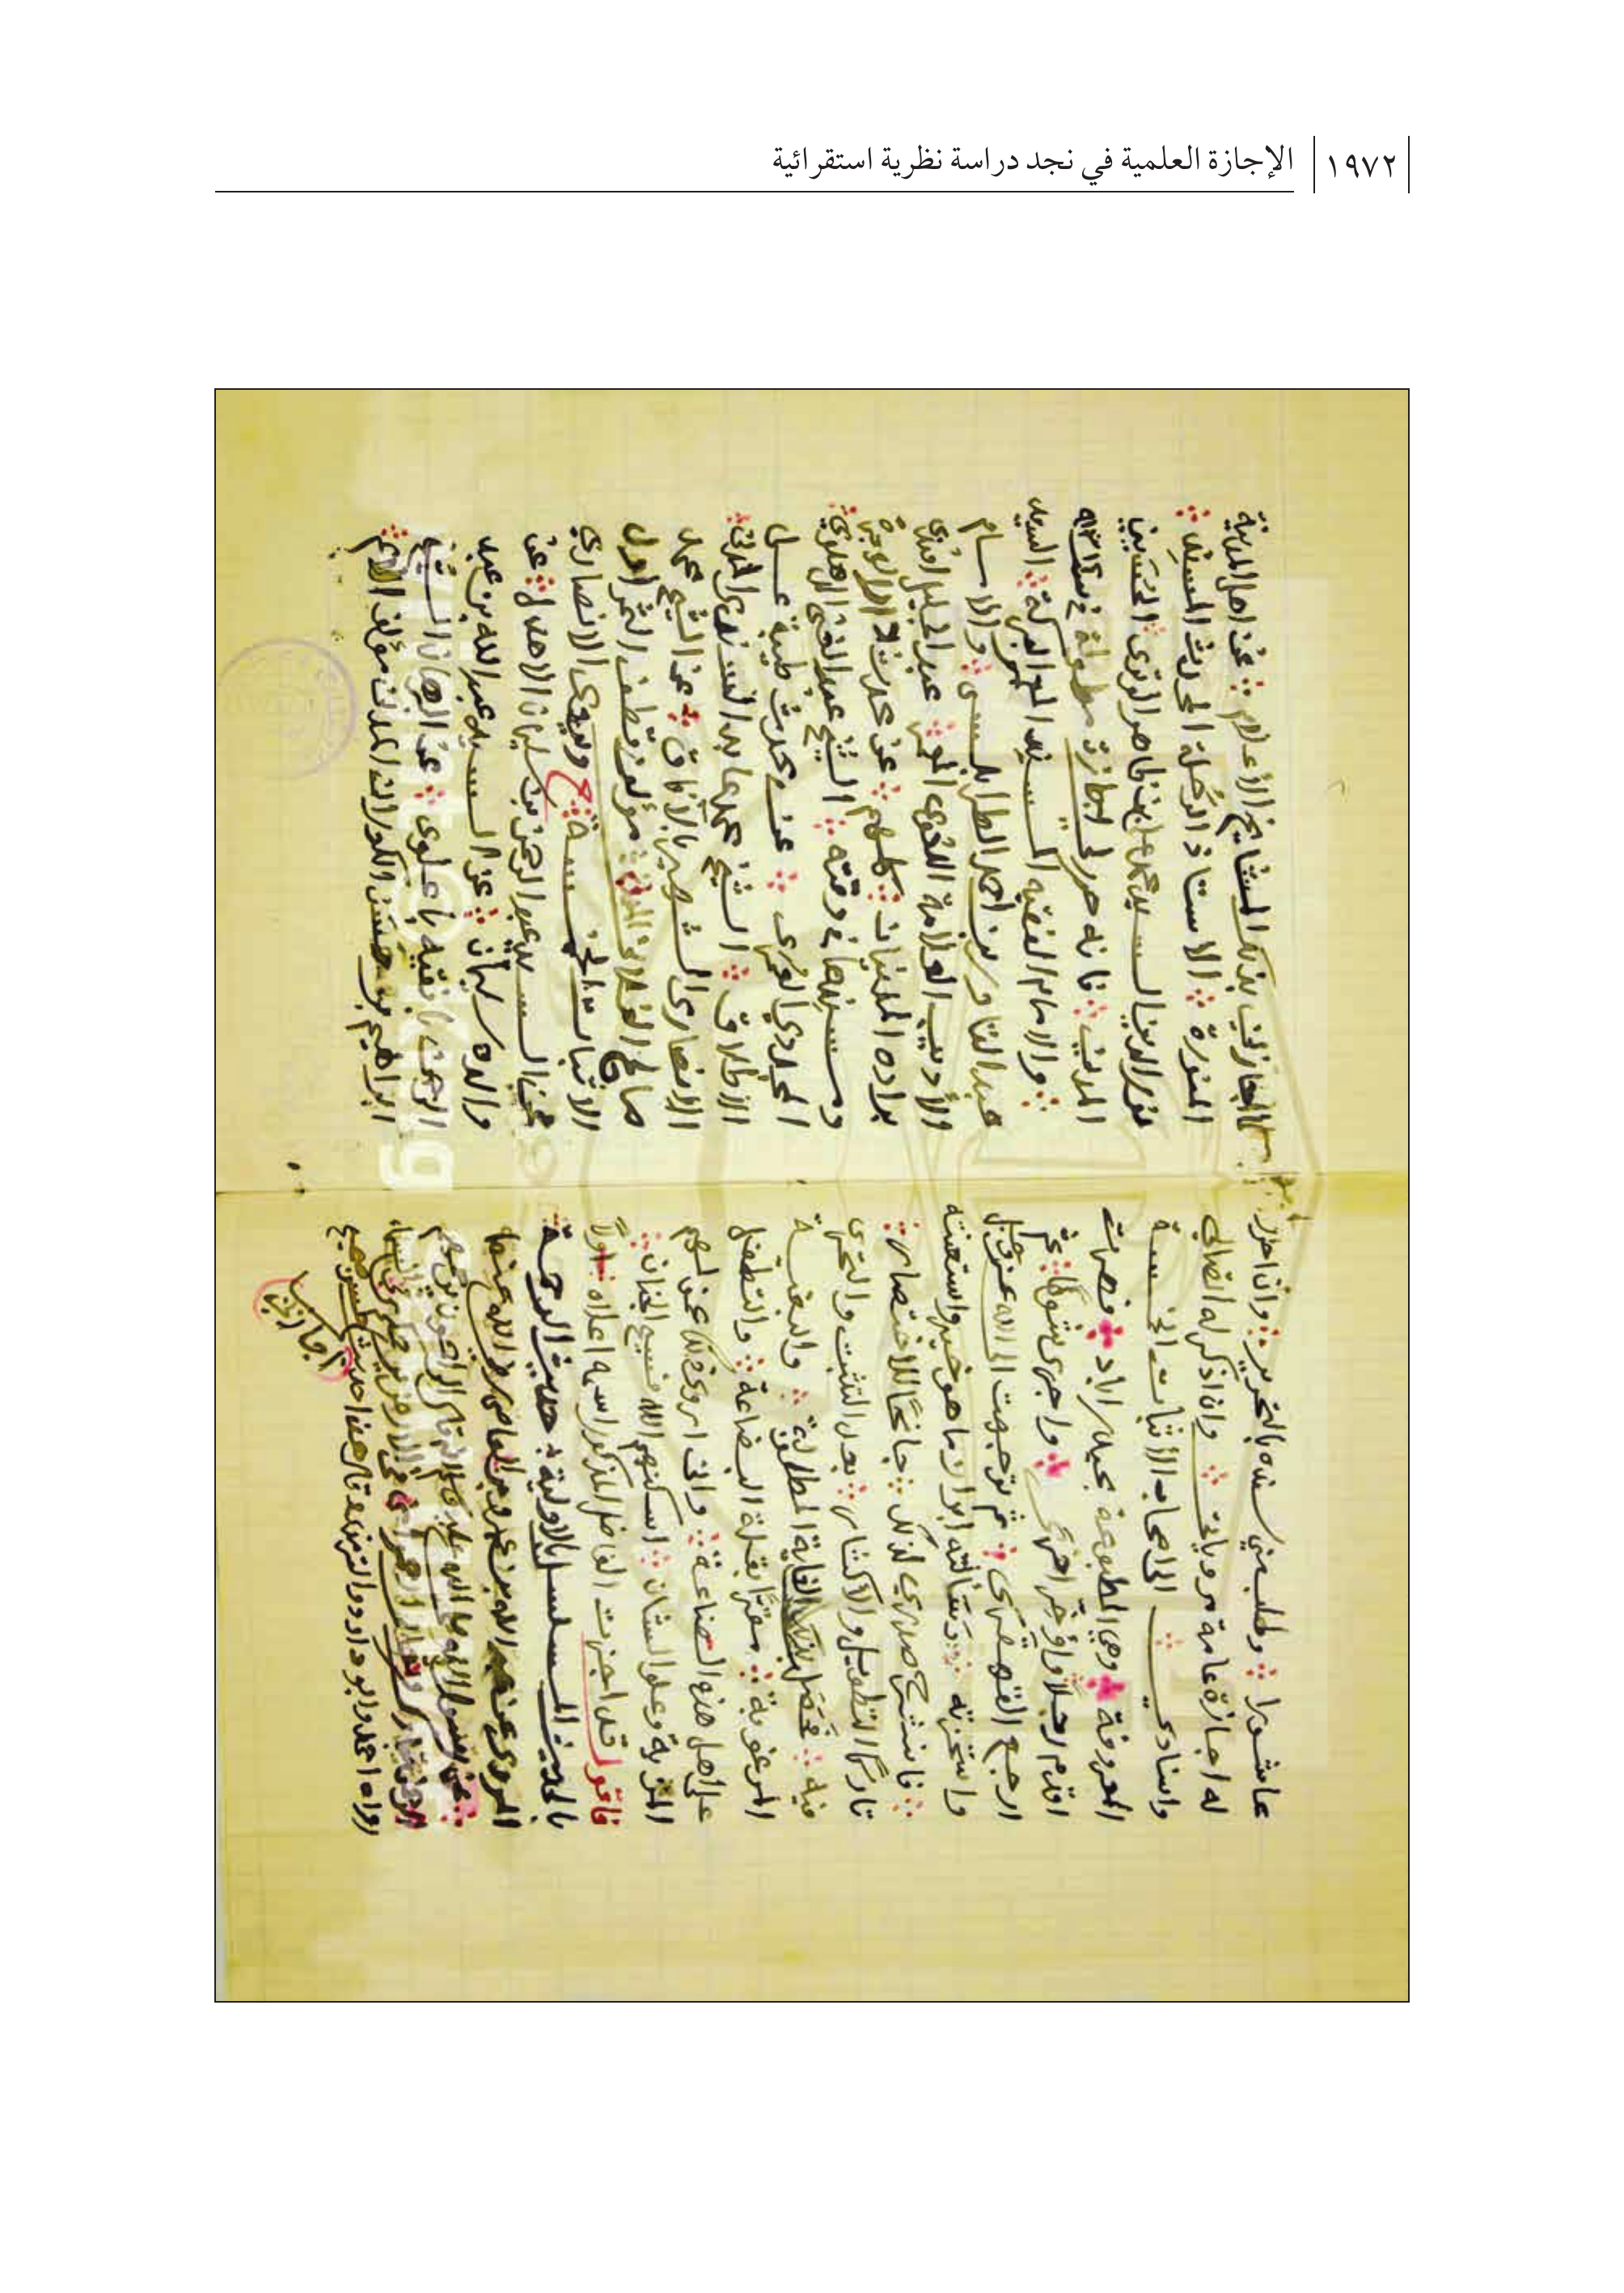 ١٩٧٢ الإجازة العلمية في نجد دراسة نظرية استقرائية
عاشورا وطلب مني سنده بالتحرير وان احرر
له اجازة عامة مروياتي وان اذكر له اتصالي
واسنادي الى اصحاب الأثبات الخمسة
المعروفة وهي المطبوعة بحيدر اباد فصرت
اقدم رجلا واؤخر اخرى واجرى شوطا ثم
ارجع القهقرى ثم توجهت الى الله عز وجل
واستخرته وسألته ابراز ما هو خير واستعنته
فانشرح صدري لذلك جانحا للاختصار
تاركا التطويل والاكثار بعد التثبت والتحرى
فيه فحصل بذلك الغاية المطلوبة والبغية
المرغوبة مقترا بقلة البضاعة والتطفل
على اهل هذه الصناعة وانى اروى ذلك عن لهم
المزية وعلو الشان اسكنهم الله فسيح الجنان
فاقول قد اجزت الفاضل المذكور اسمه اعلاه اولا
بالحديث المسلسل بالاولية حديث الرحمة
المروى عن عبد الله بن عمرو بن العاص رضى الله عنهما
عن رسول الله صلى الله عليه وسلم قال الراحمون يرحمهم
الرحمن تبارك وتعالى ارحموا من في الارض يرحمكم من في السماء
رواه احمد وابو داود والترمذى وقال هذا حديث حسن صحيح
المجاز بذلك المشايخ الأعلام عن اهل المدينة
المنورة الاستاذ الرحلة المحدث المسند
نور الدين السيد محمد علي بن ظاهر الوترى الحسيني
المدني فانه حرر لي اجازة مطولة في سنة
والامام الفقيه المسند المعمر البركة السيد
عبد القادر بن احمد الطرابلسى والامام
والأديب العلامة اللغوى عبد الجليل افندى
براده المدنيان كلهم عن محدث دار الهجرة
ومسندها في وقته الشيخ عبد الغني الدهلوى
المجددي العمرى عن محدث طيبة على
الاطلاق الشيخ محمد عابد السندى المدني
الانصارى الشهير بالآفاق عن الشيخ محمد
صالح الفلاني المدني مؤلف قطف الثمر اول
الاثبات الخمسة ح ويروى الانصاري
عن السيد عبد الرحمن بن سليمان الاهدل عن
والده سليمان عن السيد عبد الله بن عبد
الرحمن بافقيه باعلوى عن البرهان الشيخ
ابراهيم بن حسن الكوراني المدني مؤلف الامم